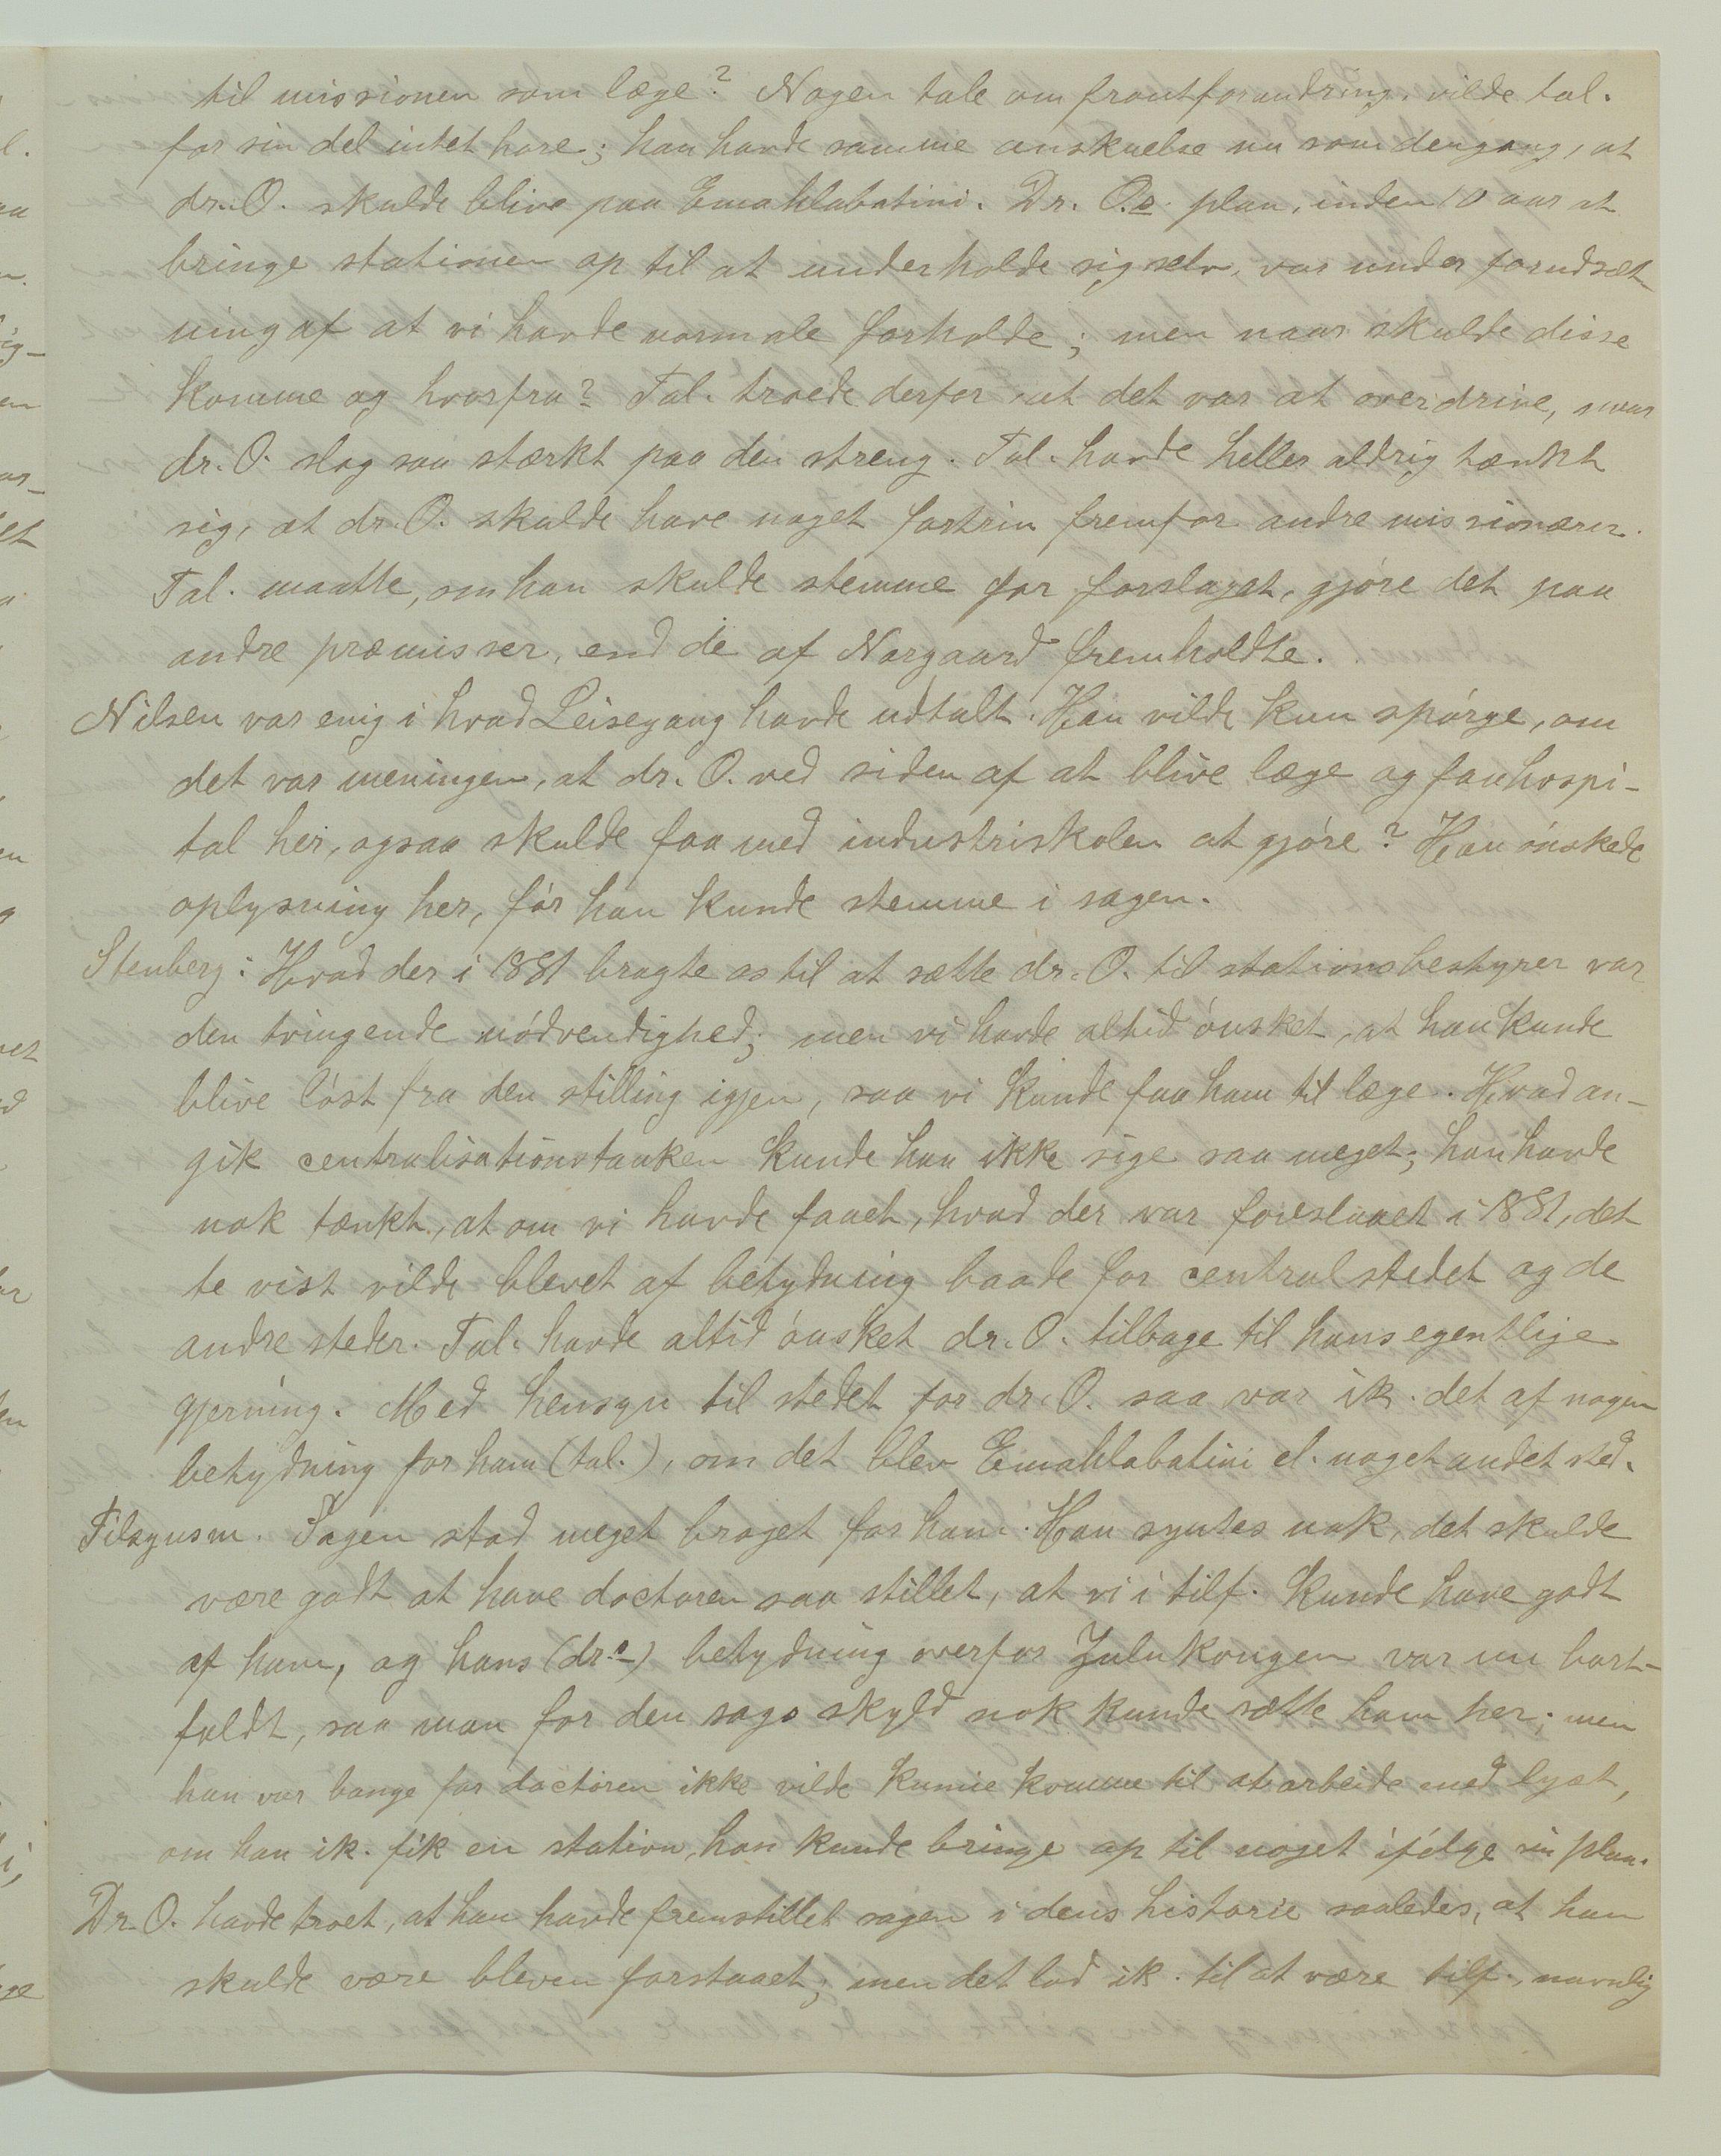 til missionen som læge? Nogen tale om frontforandring, vilde tal.
for sin del intet høre; han havde samme anskuelse nu som dengang, at
dr. O. skulde blive paa Emahlabatini. Dr. O.s plan, inden 10 aar at
bringe stationen op til at underholde sig selv, var under forudsæt
ning af at vi havde normale forholde; men naar skulde disse
komme og hvorfra? Tal. troede derfor at det var at overdrive, naar
dr. O. slog saa stærkt paa den streng. Tal. havde heller aldrig tænkt
sig, at dr. O. skulde have noget fortrin fremfor andre missionærer.
Tal. maatte, om han skulde stemme for forslaget, gjøre det paa
andre præmisser, end de af Norgaard fremholdte.
Nilsen var enig i hvad Leisegang havde udtalt. Han vilde kun spørge, om
det var meningen, at dr. O. ved siden af at blive læge og faa hospi-
tal her, ogsaa skulde faa med industriskolen at gjøre? Han ønskede
oplysning her, før han kunde stemme i sagen.
Stenberg: Hvad der i 1881 bragte os til at sætte dr. O. til stationsbestyrer var
den tvingende nødvendighed; men vi havde altid ønsket, at han kunde
blive løst fra den stilling igjen, saa vi kunde faa ham til læge. Hvad an-
gik centralisationstanken kunde han ikke sige saa meget; han havde
nok tænkt, at om vi havde faaet, hvad der var foreslaaet i 1881, det
te vist vilde blevet af betydning baade for centralstedet og de
andre steder. Tal. havde altid ønsket dr. O. tilbage til hans egentlige
gjerning. Med hensyn til stedet for dr. O. saa var ik. det af nogen
betydning for ham (tal.), om det blev Emahlabatini el. noget andet sted.
Tilsynsm. Sagen stod meget broget for ham. Han syntes nok, det skulde
være godt at have doctoren saa stillet, at vi i tilf. kunde have godt
af ham, og hans (dr.s) betydning overfor Zulukongen var nu bort-
faldt, saa man for den sags skyld nok kunde sætte ham her; men
han var bange for doctoren ikke vilde kunne komme til at arbeide med lyst,
om han ik. fik en station, han kunde bringe op til noget ifølge sin plan.
Dr. O. havde troet, at han havde fremstillet sagen i dens historie saaledes, at han
skulde være bleven forstaaet; men det lod ik. til at være tilf., navnlig